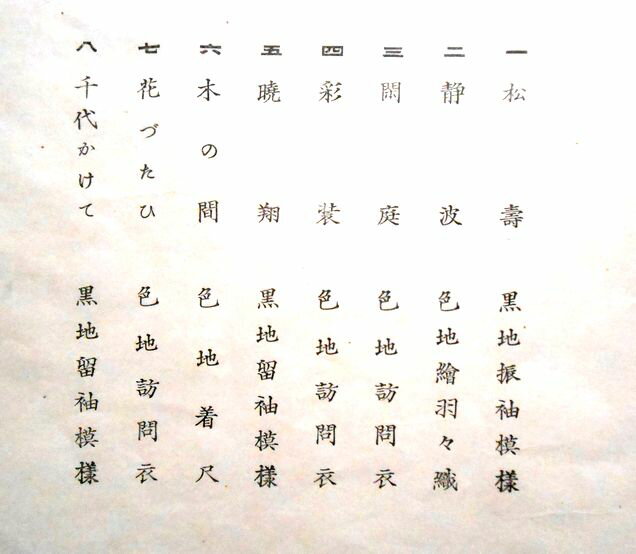 一 松壽 黒地振袖模樣
二 靜波 色地繪羽々織
三 閑庭 色地訪問衣
四 彩裳 色地訪問衣
五 曉翔 黒地留袖模樣
六 木の間 色地着尺
七 花づたひ 色地訪問衣
八 千代かけて 黒地留袖模樣